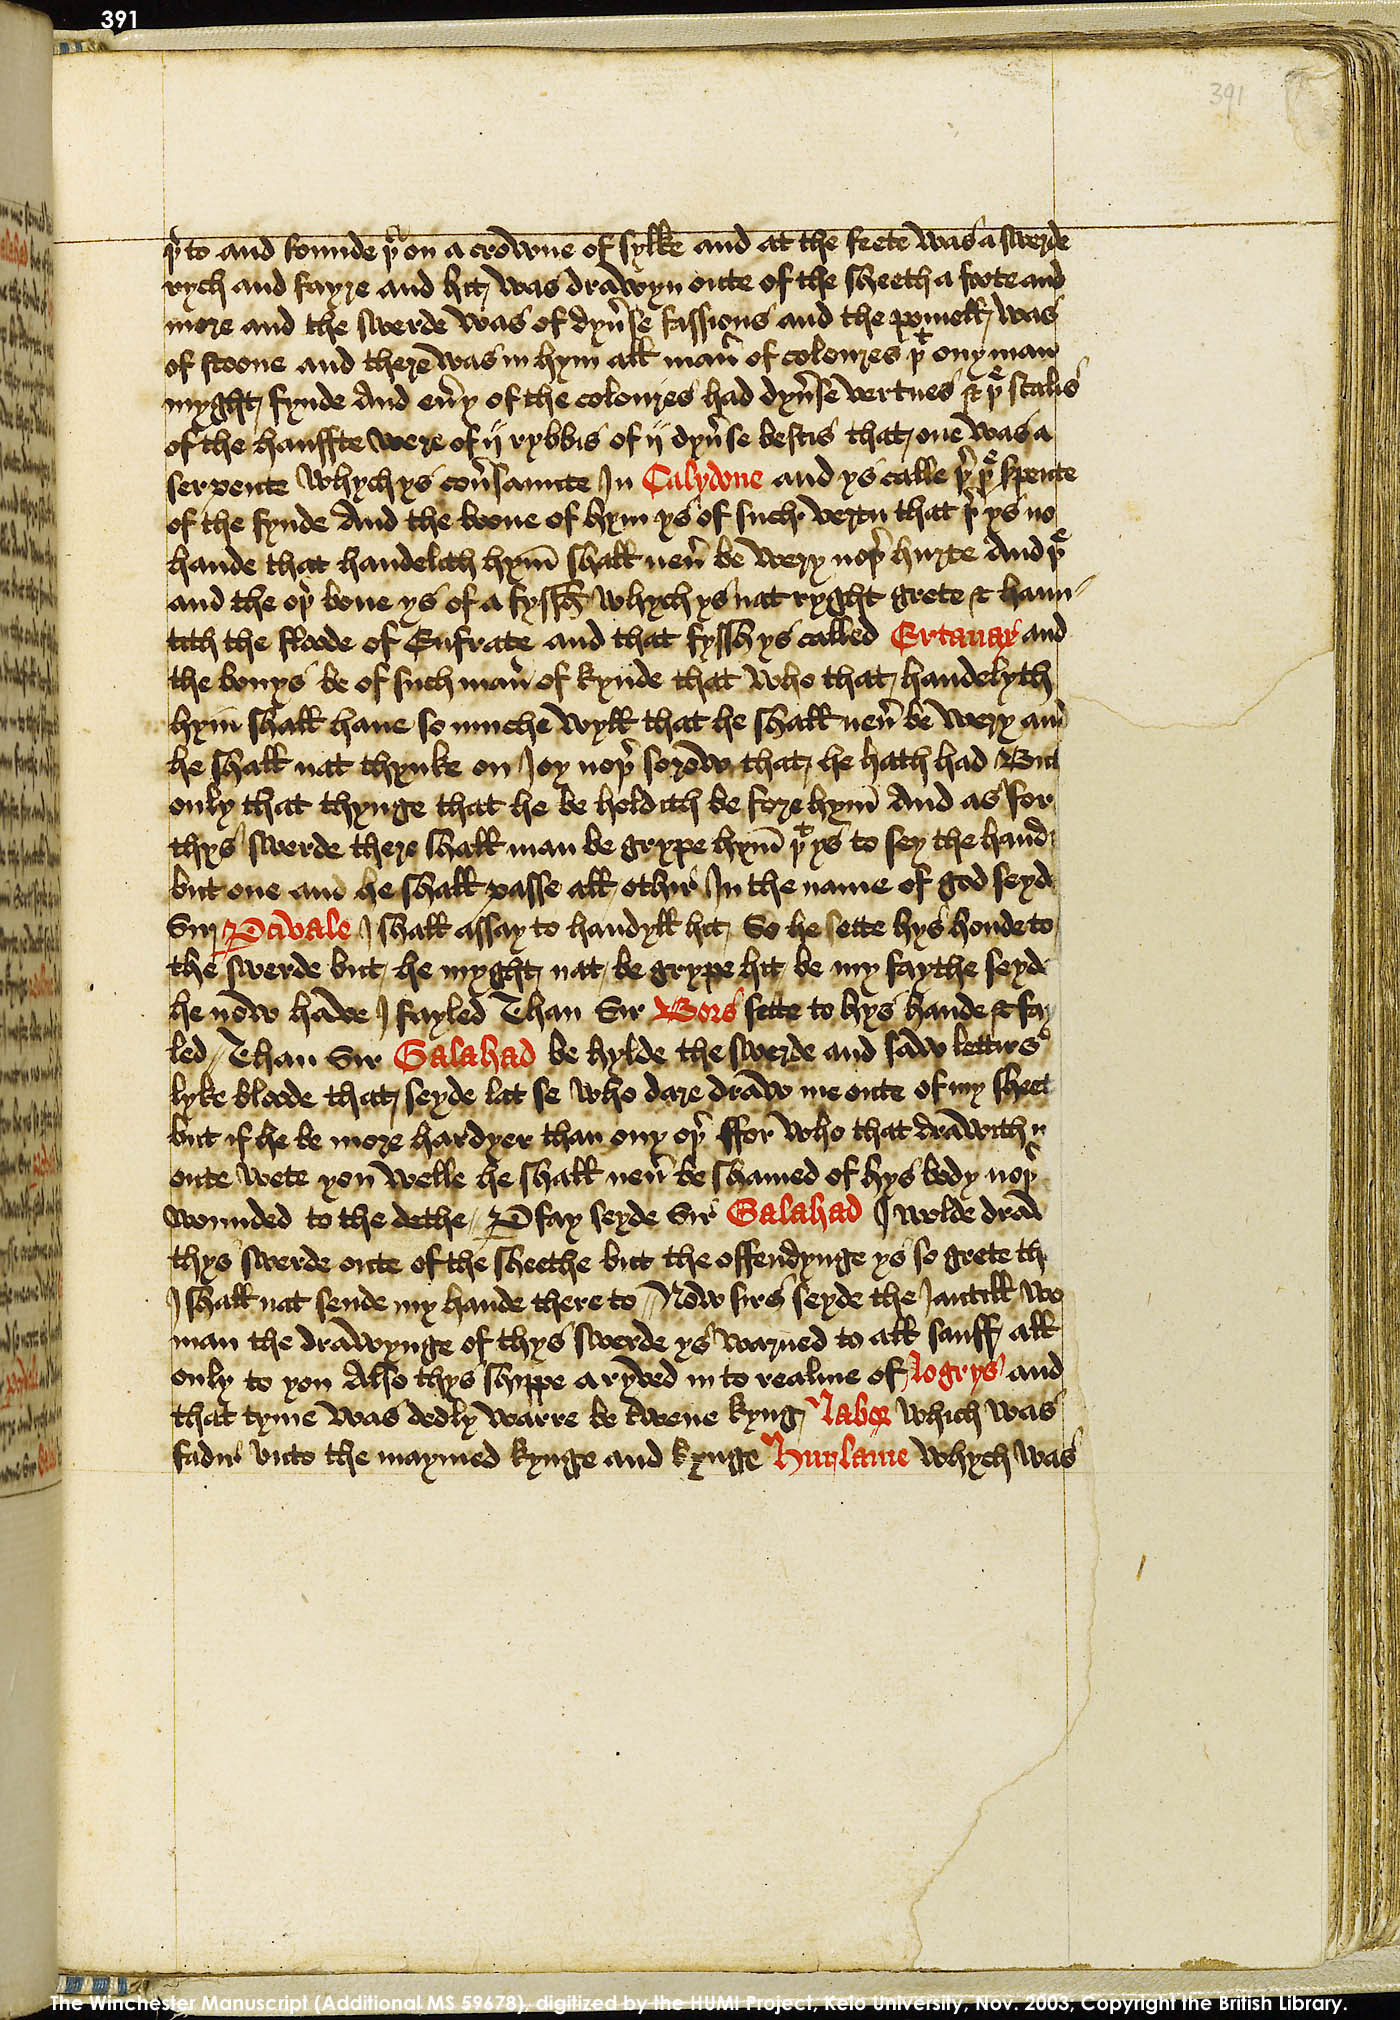 391
391
þer to and founde þer on a crowne of sylke and at the feete was a swerde
rych and fayre and hit was drawyn oute of the sheeth a foote and
more and the swerde was of dyuerse fassions and the pomell was
of stoone and there was in hym all maner of coloures þt ony man
myght fynde And euery of the coloures had dyuerse vertues & þe scalis
of the hauffte were of ij rybbis of ij dyuerse bestis that one was a
serpente whych ys conuersaunte In Calydone and ys calle þer þe serpente
of the fynde And the boone of hym ys of such vertu that þer ys no
hande that handelith hym shall neuer be wery noþer hurte And þe
and the oþer bone ys of a fyssh whych ys nat ryght grete & haun
tith the floode of Eufrate and that fyssh ys called Ertanax and
the bonys be of such maner of kynde that who that handelyth
hym shall haue so muche wyll that he shall neuer be wery and
he shall nat thynke on Joy noþer sorow that he hath had But
only that thynge that he be holdith be fore hym And as for
thys swerde there shall man be grype hym þt ys to sey the hand
but one and he shall passe all othir In the name of god seyd
Sir Percivale I shall assay to handyll hit So he sette hys honde to
the swerde but he myght nat be grype hit be my faythe seyd
he now haue I fayled Than Sir Bors sette to hys hande & fay
led Than Sir Galahad be hylde the swerde and saw lettirs
lyke bloode that seyde lat se who dare draw me oute of my sheet
but if he be more hardyer than ony oþer ffor who that drawith
oute wete you welle he shall neuer be shamed of hys body noþer
wounded to the dethe Per fay seyde Sir Galahad I wolde draw
thys swerde oute of the sheethe but the offendynge ys so grete th
I shall nat sende my hande there to Now sirs seyde the Jantill wo
man the drawynge of thys swerde ys warned to all sauff all
only to you Also thys shyppe aryved in to realme of Logrys and
that tyme was dedly warre be twene kyng Labor which was
fadir vnto the maymed kynge and kynge Hurlaine whych was
The Winchester Manuscript (Additional MS 59678), digitized by the HUMI Project, Keio University, Nov. 2003, Copyright the British Library.